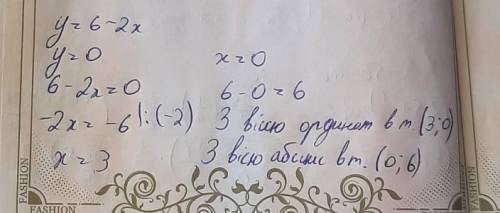 y = 6 - 2x
y = 0
6 - 2x = 0
-2x = -6 | : (-2)
x = 3
x = 0
6 - 0 = 6
З вісю ординат в т. (3; 0)
З вісю абсцис в т. (0; 6)
FASHION
FASHION
FASHION
FASHION